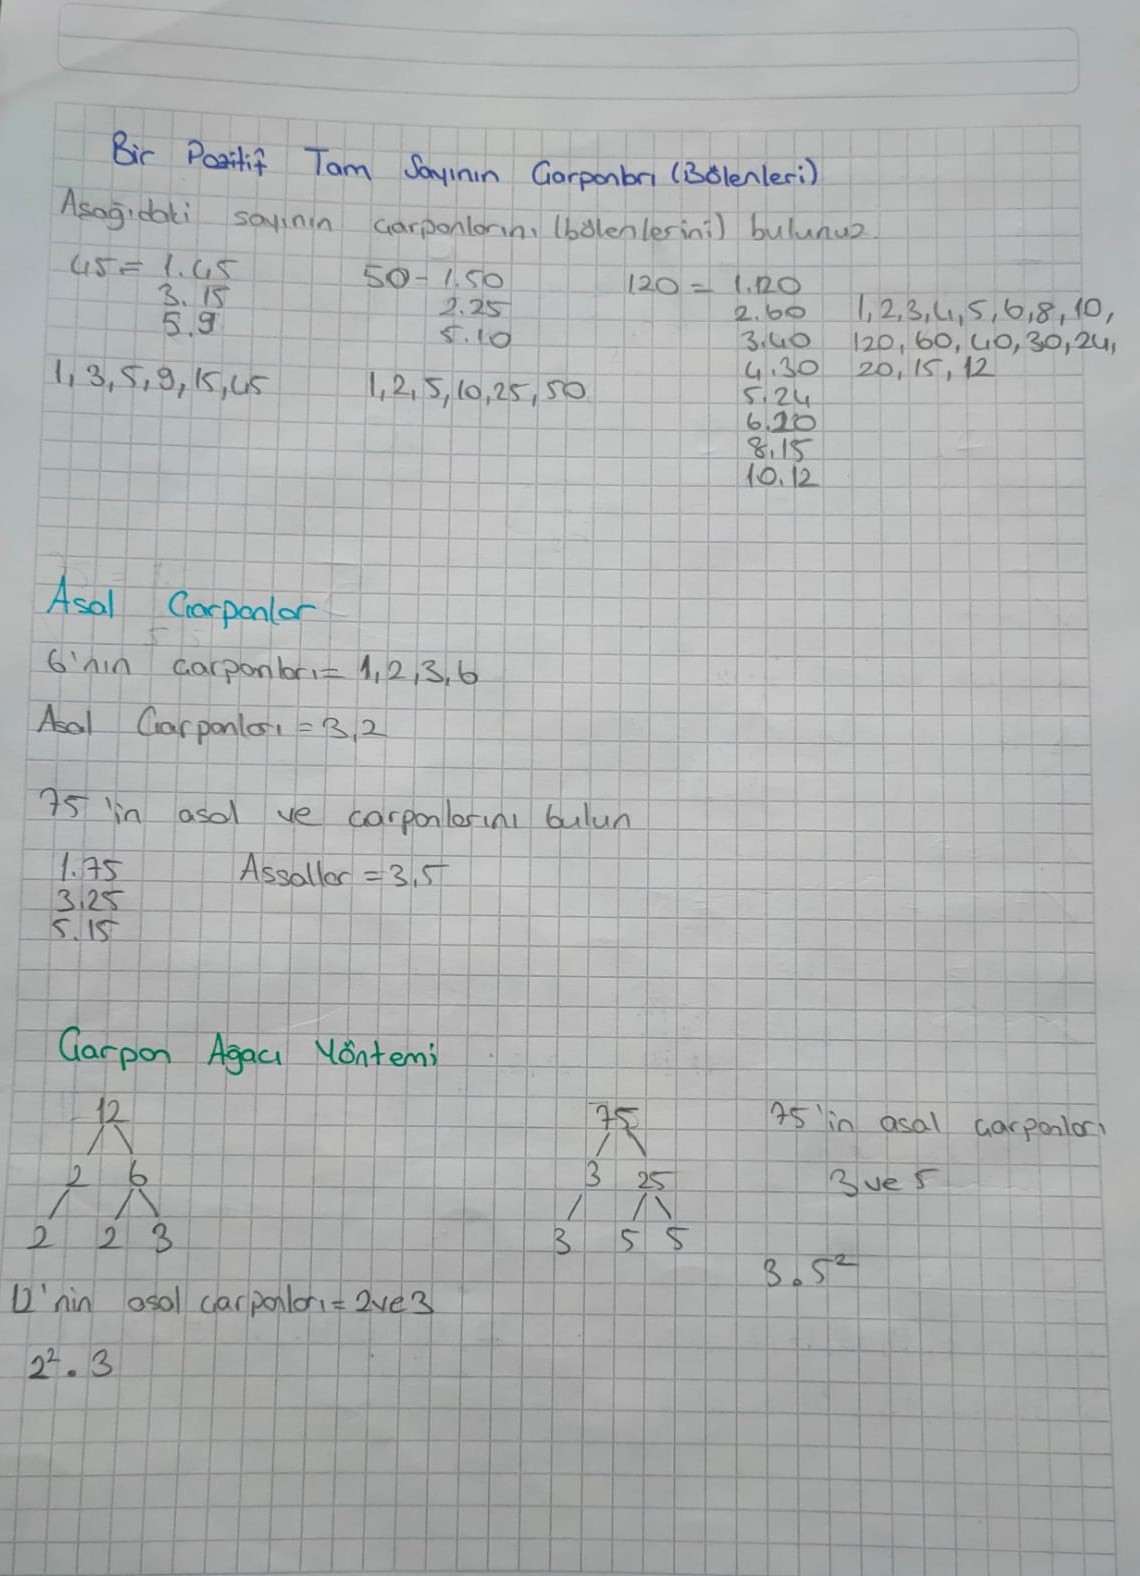 Bir Pozitif Tam Sayının Çarpanları (Bölenleri)
Aşağıdaki sayının çarpanlarını (bölenlerini) bulunuz.
45 = 1.45
3.15
5.9
1, 3, 5, 9, 15, 45
50 - 1.50
2.25
5.10
1, 2, 5, 10, 25, 50
120 = 1.120
2.60
3.40
4.30
5.24
6.20
8.15
10.12
1, 2, 3, 4, 5, 6, 8, 10,
120, 60, 40, 30, 24,
20, 15, 12
Asal Çarpanlar
6'nın çarpanları = 1, 2, 3, 6
Asal Çarpanları = 3, 2
75'in asal ve çarpanlarını bulun
1.75
3.25
5.15
Assallar = 3, 5
Çarpan Ağacı Yöntemi
12
2 6
2 2 3
12'nin asal çarpanları = 2 ve 3
2² . 3
75
3 25
3 5 5
75'in asal çarpanları
3 ve 5
3 . 5²